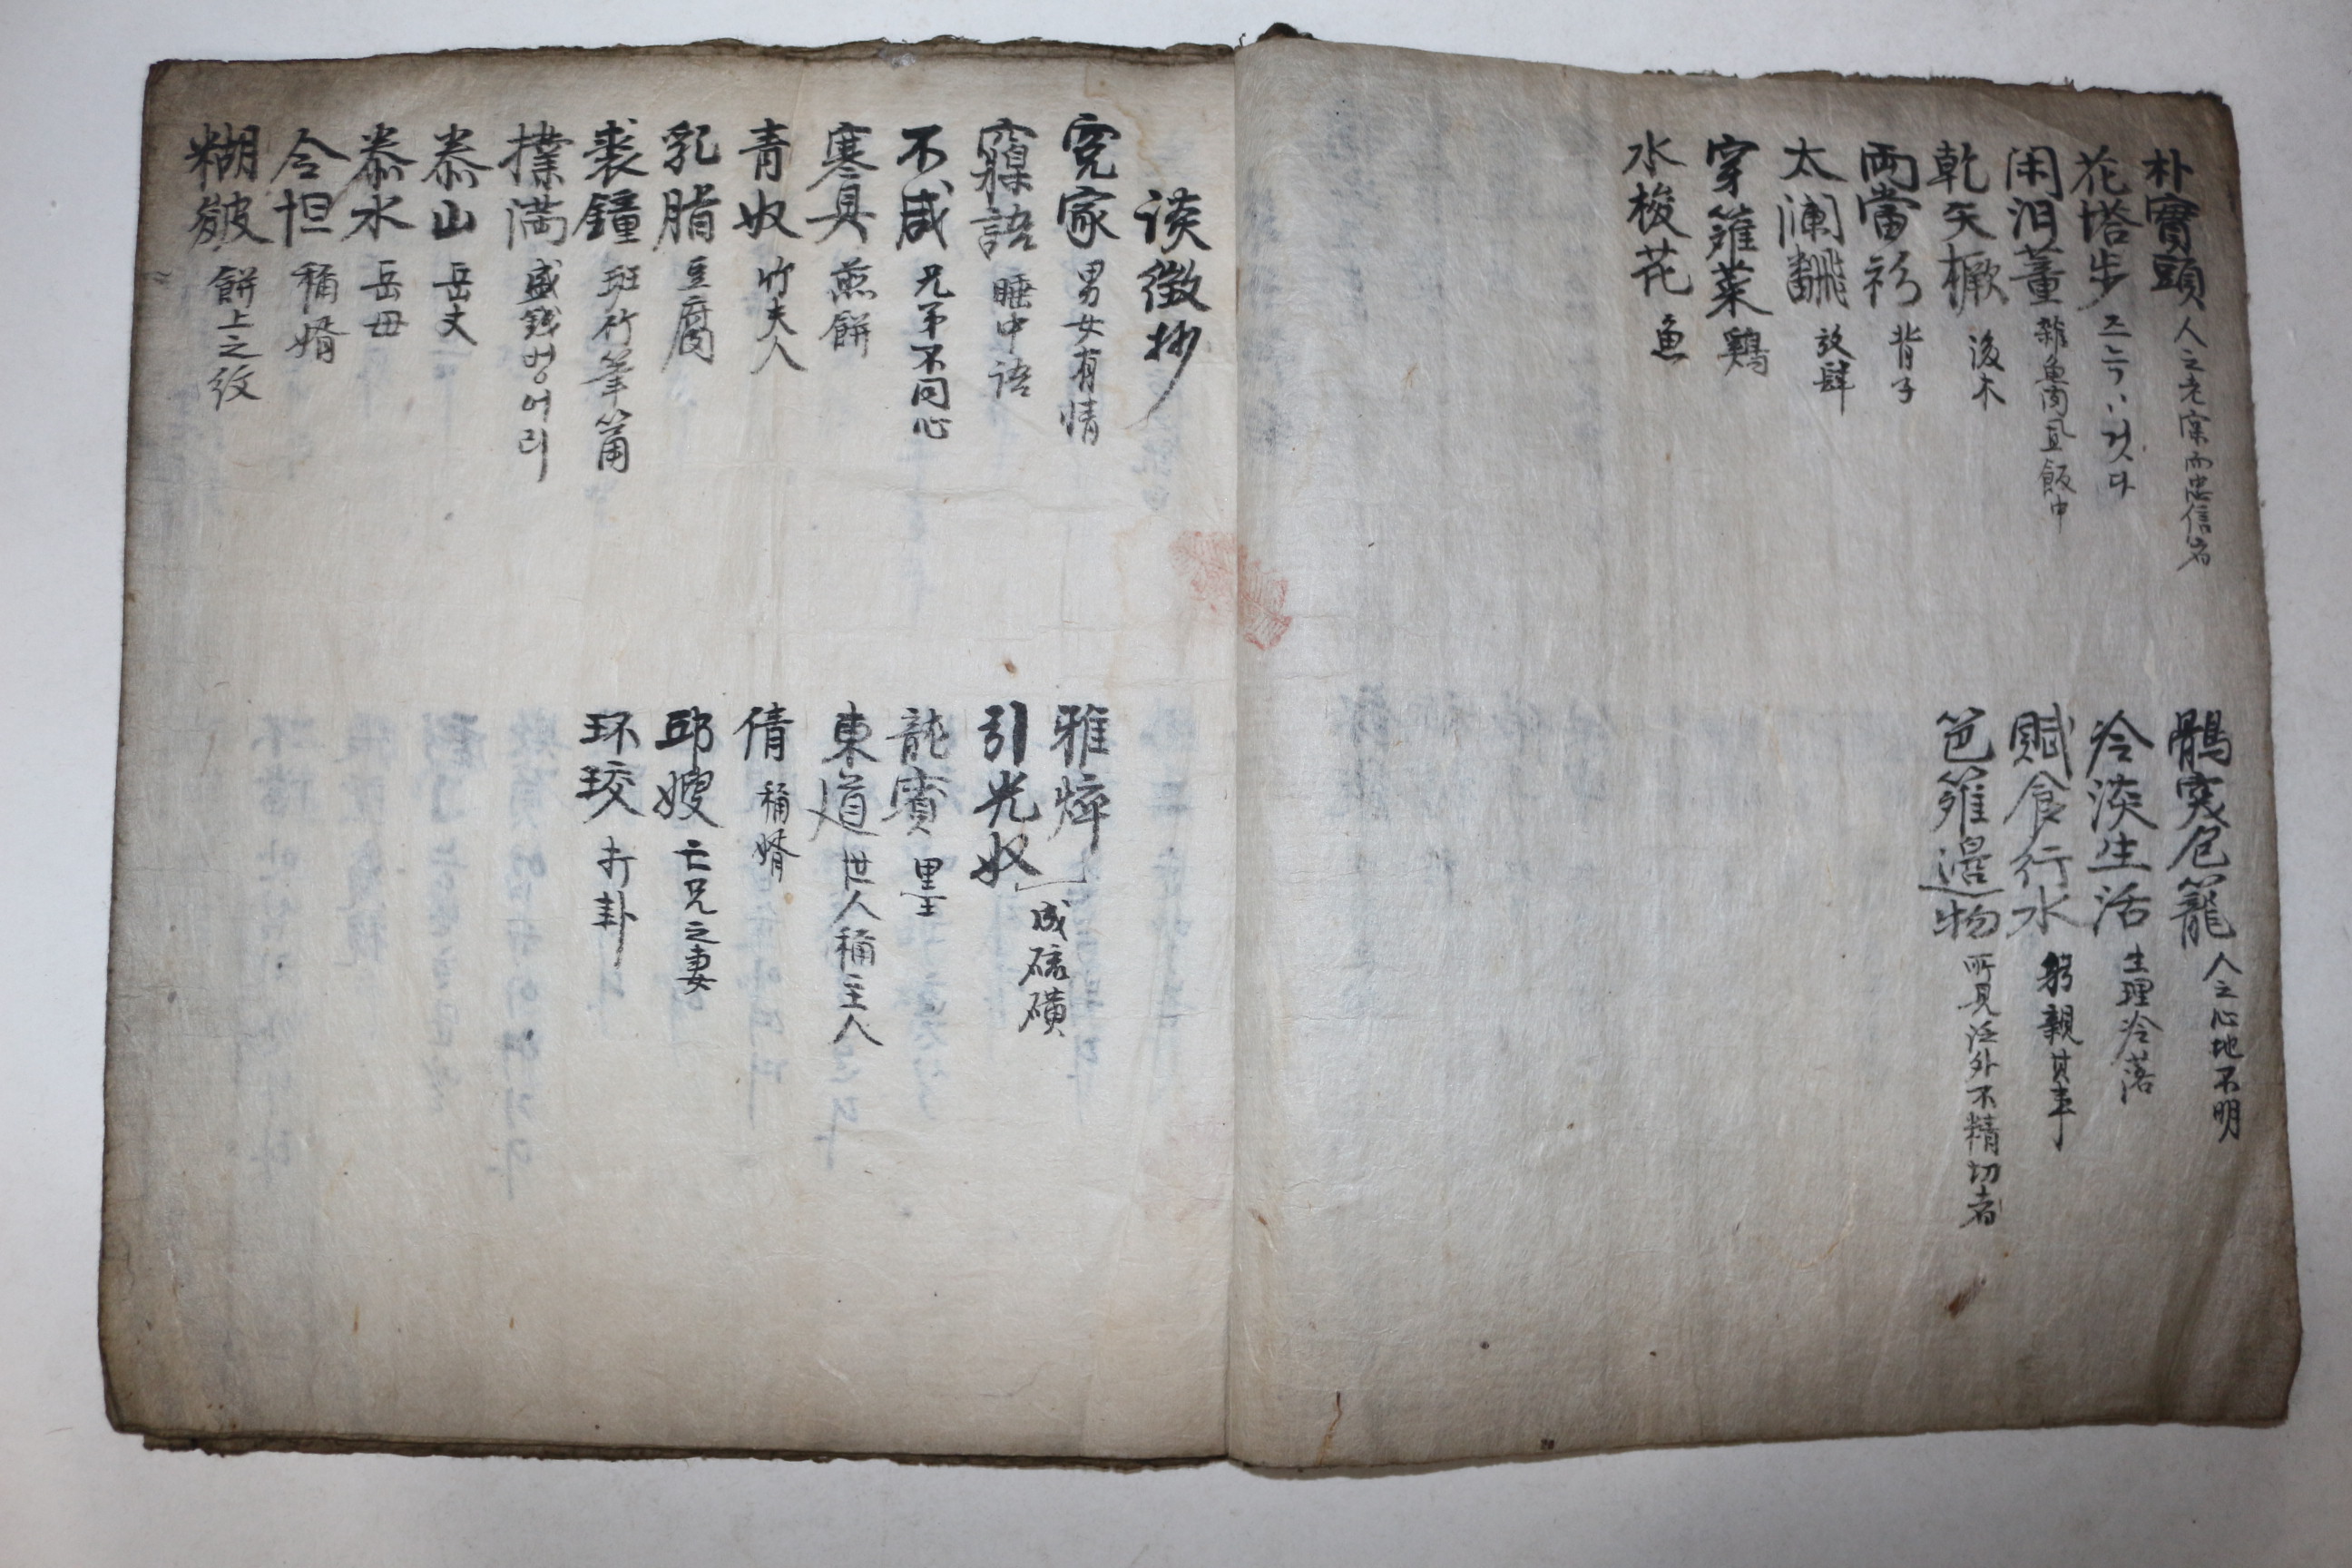 朴實頭 人之老實而忠信者
花塔步 즈늑〻것다
閑汩董 雜魚肉且飯中
乾矢橛 淺木
兩當衫 背子
太瀾飜 放肆
穿籬菜 鷄
水梭花 魚
鶻突包籠 人之心地不明
冷淡生活 生理冷落
賦食行水 躬親其事
笆籬邊物 所見泛外不精切者
談徵抄
寃家 男女有情
寱語 睡中語
不咸 兄弟不同心
寒具 煎餠
青奴 竹夫人
乳脂 豆腐
裘鐘 班竹筆筩
撲滿 盛錢벙어리
泰山 岳丈
泰水 岳母
令坦 稱婿
糊皴 餠上之紋
雅焠
引光奴 成硫磺
龍賓 墨
東道 世人稱主人
倩 稱婿
邱嫂 亡兄之妻
环珓 打卦